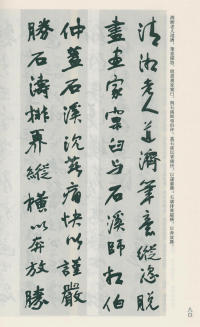 清湘老人道濟，筆意縱恣，脫盡畫家窠臼，與石溪師相伯仲，蓋石溪沉著痛快，以謹嚴勝；石濤排奡縱橫，以奔放勝。
清湘老人道濟筆意縱恣脫
盡畫家窠臼与石溪師相伯
仲蓋石溪沉著痛快以謹嚴
勝石濤排奡縱橫以奔放勝